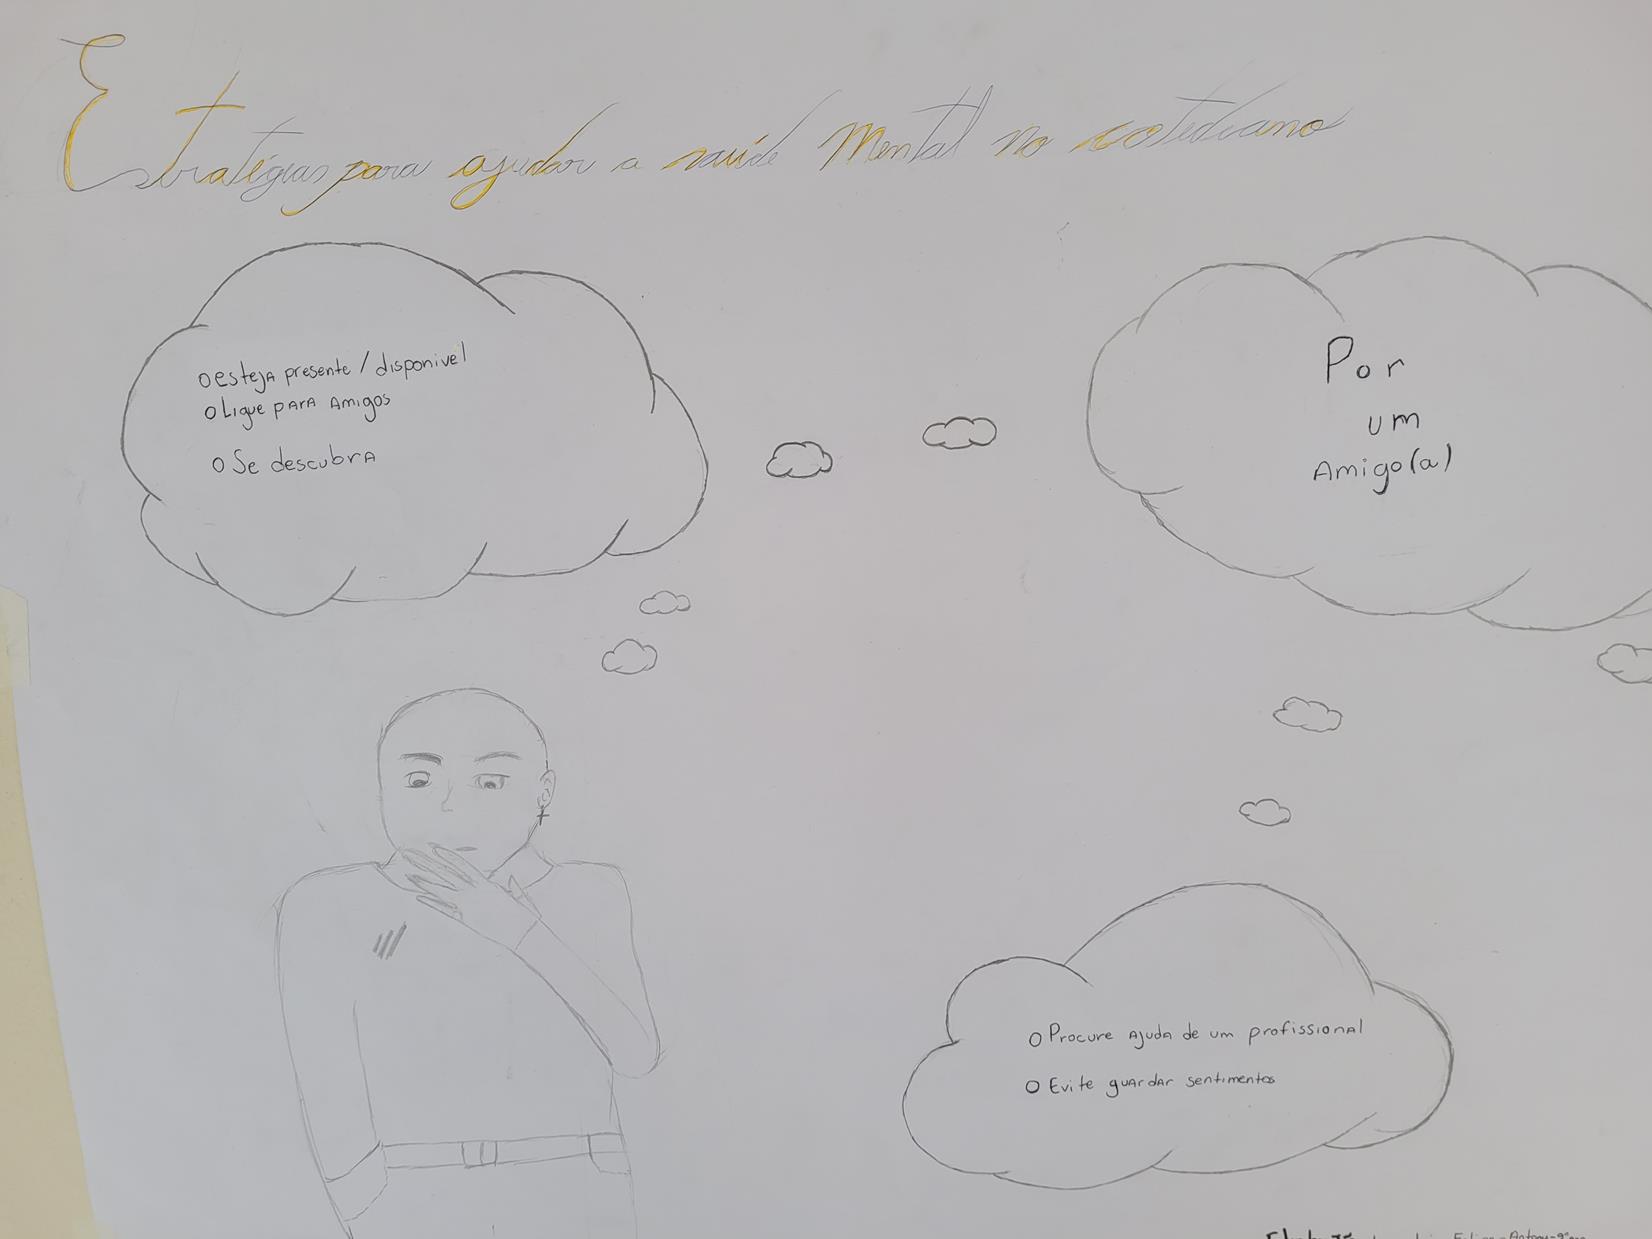 Estratégias para ajudar a saúde Mental no cotediano
o esteja presente / disponivel
o Ligue para Amigos
o Se descubra
Por
um
Amigo(a)
o Procure Ajuda de um profissional
o Evite guardar sentimentos